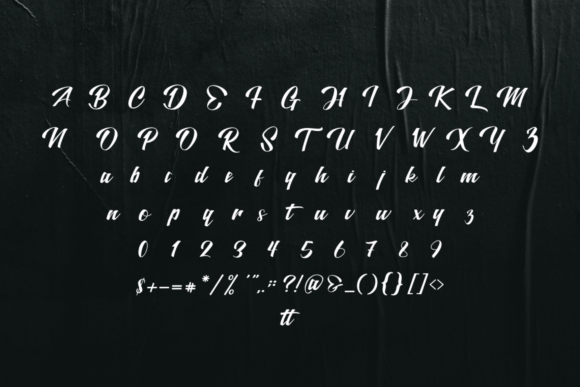 A B C D E F G H I J K L M
N O P O R S T U V W X Y Z
a b c d e f g h i j k l m
n o p q r s t u v w x y z
0 1 2 3 4 5 6 7 8 9
$+-=#*/%'",.:;?!@&_(){}[]<>
tt